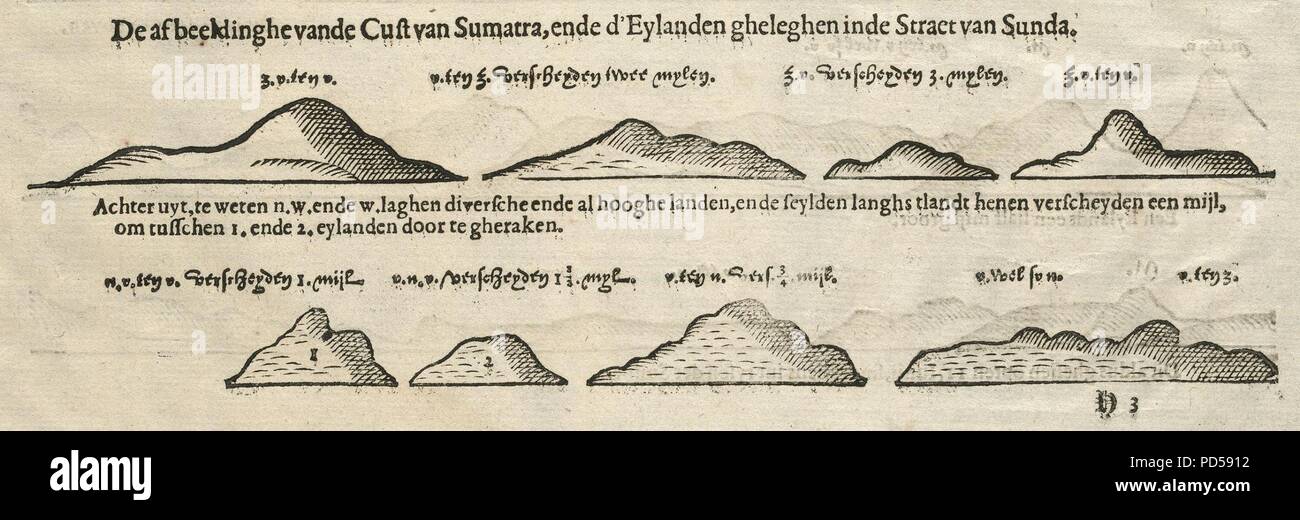 De afbeeldinghe vande Cust van Sumatra, ende d'Eylanden gheleghen inde Straet van Sunda.
z. o. ten o. o. ten z. verscheyden twee mylen. z. o. verscheyden 3. mylen. z. o. ten o.
Achter uyt, te weten n. w. ende w. laghen diversche ende al hooghe landen, ende seylden langhs tlandt henen verscheyden een mijl,
om tusschen 1. ende 2. eylanden door te gheraken.
n. o. ten o. verscheyden 1. mijl. o. n. o. verscheyden 1 myl. o. ten n. vers. 3/4 mijl. o. wel so n. o. ten z.
1 2
H 3
alamy
Image ID: PD5912
www.alamy.com